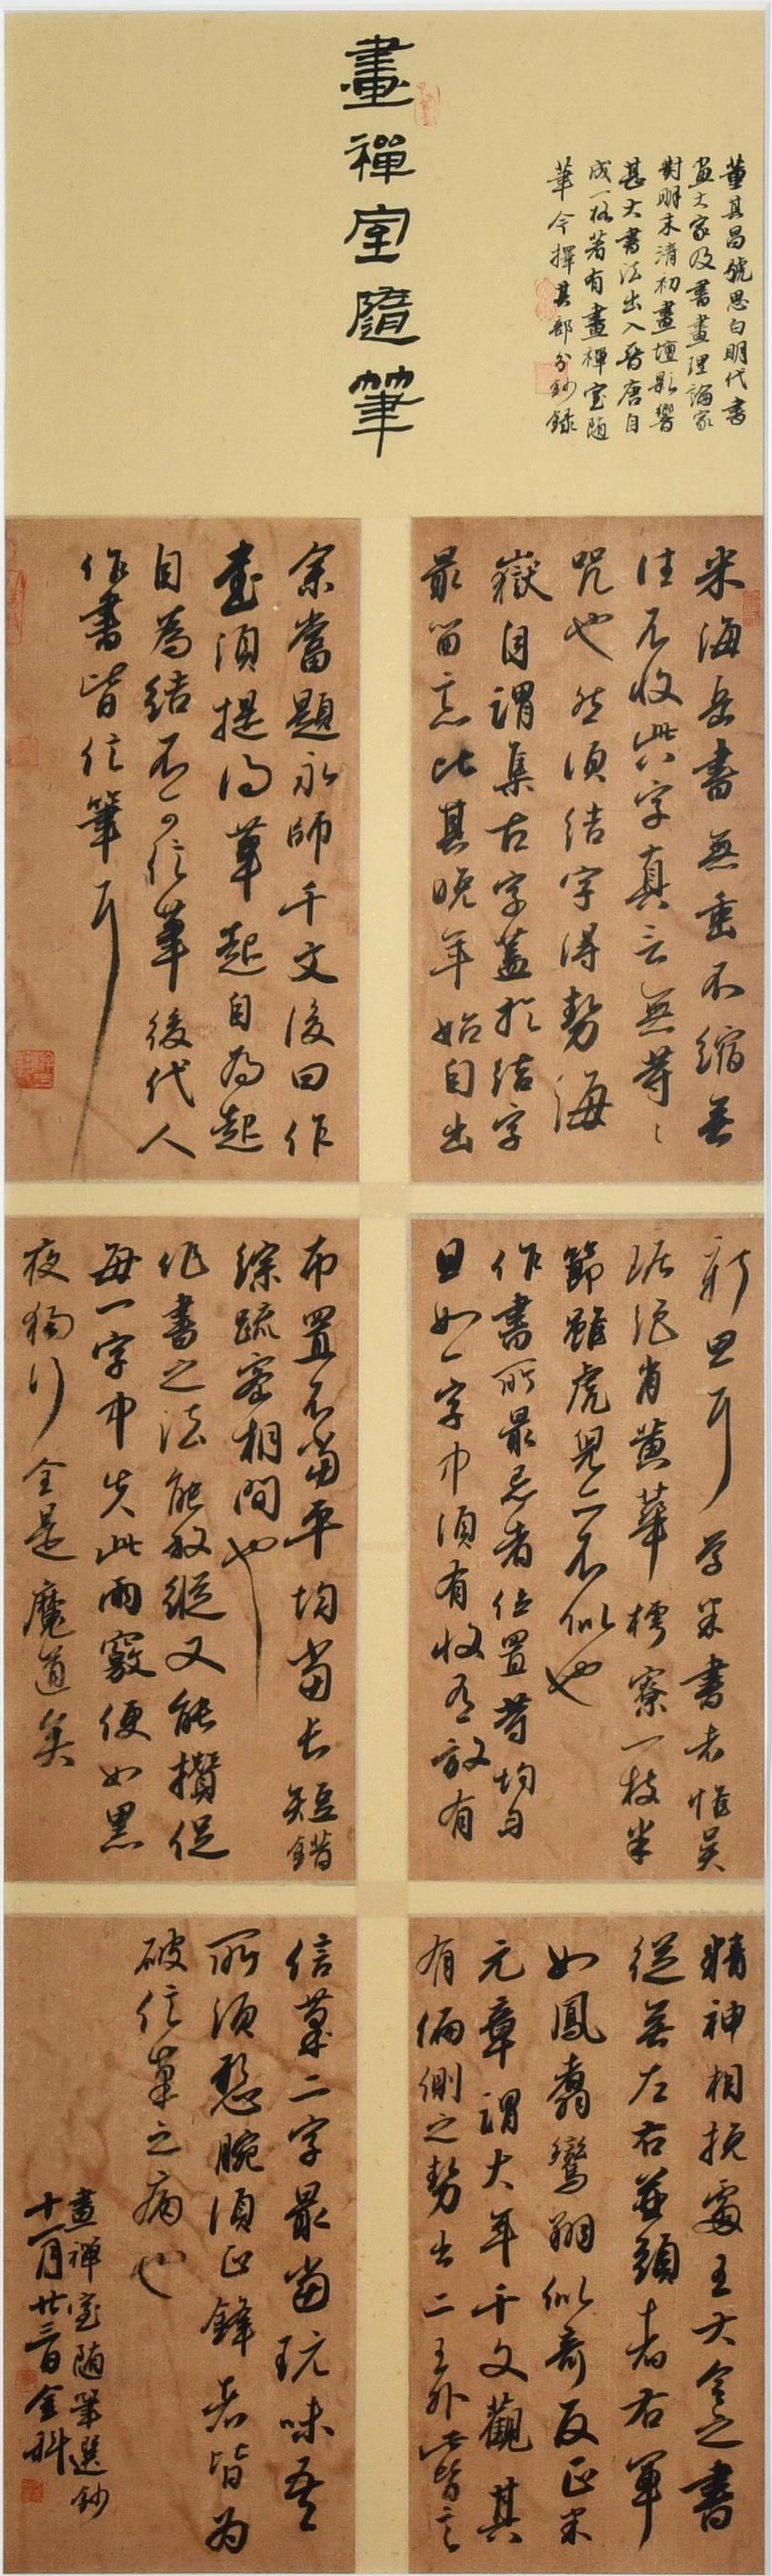 畫禪室隨筆
董其昌號思白明代書
畫大家及書畫理論家
對明末清初畫壇影響
甚大書法出入晉唐自
成一格著有畫禪室随
筆今擇其部分鈔錄
米海岳書無垂不縮無
往不收此字真言無等々
咒也然須結字得勢海
嶽自謂集古字蓋於結字
最留意比其晚年始自出
新思耳學米書者惟吳
琚絕肖黃華樗寮一枝半
節雖虎兒亦不似也
作書所最忌者位置等均
且如一字中須有收有放有
精神相挽處王大令之書
從無左右並頭者右軍
如鳳翥鸞翔似奇反正米
元章謂大年千文觀其
有偏側之勢出二王外此皆言
布置不當平均當長短錯
綜疏密相間也
作書之法能放縱又能攢促
每一字中失此兩竅便如黑
夜獨行全是魔道矣
余嘗題永師千文後曰作
書須提得筆起自為起
自為結不可信筆後代人
作書皆信筆耳
信筆二字最當玩味吾
所須懸腕須正鋒者皆為
破信筆之病也
畫禪室随筆選鈔
十一月廿三日金科